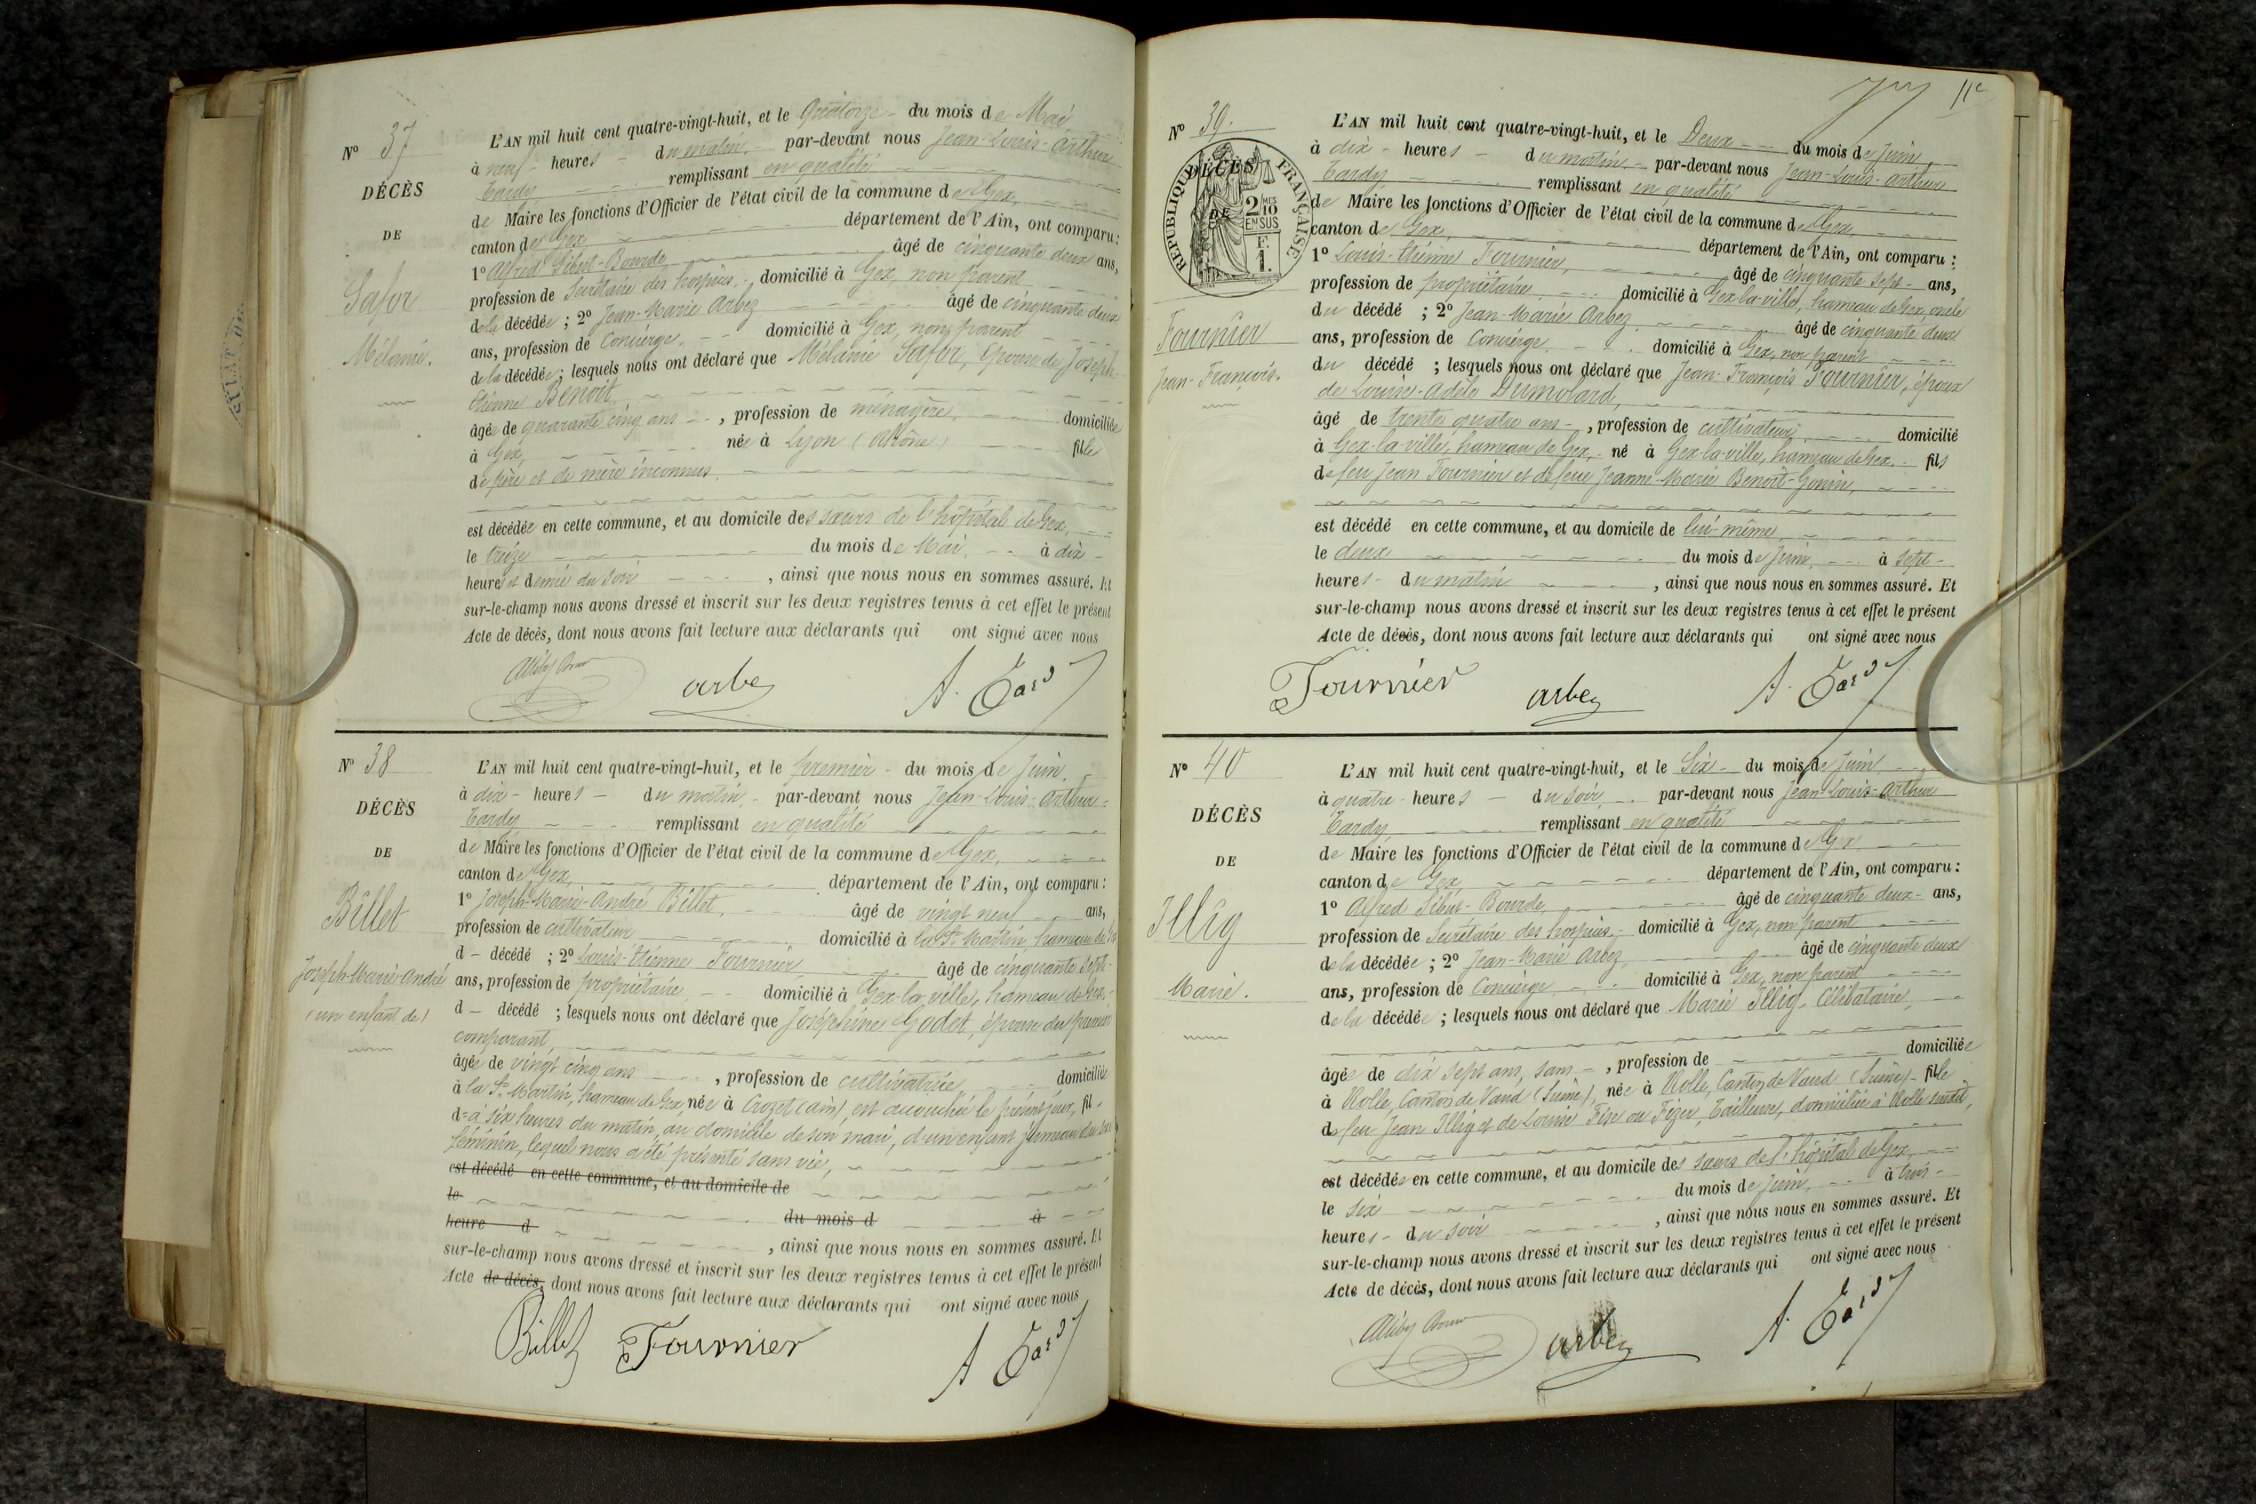 N° 37
DÉCÈS
DE
Safor
Mélanie.
L'AN mil huit cent quatre-vingt-huit, et le Quatorze du mois de Mai
à neuf heures du matin, par-devant nous Jean-Louis-Arthur
Tardy remplissant en qualité
de Maire les fonctions d'Officier de l'état civil de la commune de Gex,
canton de Gex, département de l'Ain, ont comparu :
1° Alfred Sibut-Bourde âgé de cinquante deux ans,
profession de Secrétaire des hospices, domicilié à Gex, non parent
de la décédée ; 2° Jean-Marie Arbez âgé de cinquante deux
ans, profession de Concierge, domicilié à Gex, non parent
de la décédée ; lesquels nous ont déclaré que Mélanie Safor, épouse de Joseph
Etienne Benoit,
âgée de quarante cinq ans , profession de ménagère, domiciliée
à Gex, née à Lyon (Rhône) fille
de père et de mère inconnus.
est décédée en cette commune, et au domicile des sœurs de l'hôpital de Gex,
le treize du mois de Mai, à dix
heures et demie du soir , ainsi que nous nous en sommes assuré. Et
sur-le-champ nous avons dressé et inscrit sur les deux registres tenus à cet effet le présent
Acte de décès, dont nous avons fait lecture aux déclarants qui ont signé avec nous
arbez A. Tardy
N° 38
DÉCÈS
DE
Billet
Joseph-Marie-André
(un enfant de)
L'AN mil huit cent quatre-vingt-huit, et le premier du mois de Juin,
à dix heures du matin, par-devant nous Jean-Louis-Arthur
Tardy remplissant en qualité
de Maire les fonctions d'Officier de l'état civil de la commune de Gex,
canton de Gex, département de l'Ain, ont comparu :
1° Joseph-Marie-André Billet, âgé de vingt neuf ans,
profession de cultivateur domicilié à la St Martin hameau de Gex
d décédé ; 2° Louis-Etienne Fournier âgé de cinquante sept
ans, profession de propriétaire domicilié à Gex-la-ville, hameau de Gex,
d décédé ; lesquels nous ont déclaré que Joséphine Godet, épouse du premier
comparant,
âgée de vingt cinq ans , profession de cultivatrice domiciliée
à la St Martin, hameau de Gex, née à Crozet (Ain) est accouchée le présent jour, fil
d à six heures du matin, au domicile de son mari, d'un enfant jumeau du sexe
féminin, lequel nous a été présenté sans vie,
est décédé en cette commune, et au domicile de
le du mois d à
heure d , ainsi que nous nous en sommes assuré. Et
sur-le-champ nous avons dressé et inscrit sur les deux registres tenus à cet effet le présent
Acte de décès, dont nous avons fait lecture aux déclarants qui ont signé avec nous
Billet Fournier A Tardy
N° 39.
DÉCÈS
DE
REPUBLIQUE FRANÇAISE
2/10 MES
EN SUS
F.
1.
Fournier
Jean-François.
L'AN mil huit cent quatre-vingt-huit, et le Deux du mois de Juin,
à dix heures du matin par-devant nous Jean-Louis-Arthur
Tardy remplissant en qualité
de Maire les fonctions d'Officier de l'état civil de la commune de Gex,
canton de Gex, département de l'Ain, ont comparu :
1° Louis-Etienne Fournier, âgé de cinquante sept ans,
profession de propriétaire, domicilié à Gex-la-ville, hameau de Gex, oncle
du décédé ; 2° Jean-Marie Arbez, âgé de cinquante deux
ans, profession de Concierge domicilié à Gex, non parent
du décédé ; lesquels nous ont déclaré que Jean-François Fournier, époux
de Louise-Adèle Dumolard,
âgé de trente quatre ans , profession de cultivateur, domicilié
à Gex-la-ville, hameau de Gex, né à Gex-la-ville, hameau de Gex, fils
de feu Jean Fournier et de feue Jeanne-Marie Benoit-Gonin,
est décédé en cette commune, et au domicile de lui-même,
le deux du mois de Juin, à sept
heures du matin , ainsi que nous nous en sommes assuré. Et
sur-le-champ nous avons dressé et inscrit sur les deux registres tenus à cet effet le présent
Acte de décès, dont nous avons fait lecture aux déclarants qui ont signé avec nous
Fournier arbez A. Tardy
N° 40
DÉCÈS
DE
Illig
Marie.
L'AN mil huit cent quatre-vingt-huit, et le Six du mois de Juin,
à quatre heures du soir, par-devant nous Jean-Louis-Arthur
Tardy remplissant en qualité
de Maire les fonctions d'Officier de l'état civil de la commune de Gex
canton de Gex département de l'Ain, ont comparu :
1° Alfred Sibut-Bourde, âgé de cinquante deux ans,
profession de Secrétaire des hospices, domicilié à Gex, non parent
de la décédée ; 2° Jean-Marie Arbez, âgé de cinquante deux
ans, profession de Concierge domicilié à Gex, non parent
de la décédée ; lesquels nous ont déclaré que Marie Illig, Célibataire,
âgée de dix sept ans, sans , profession de domiciliée
à Rolle, Canton de Vaud (Suisse), née à Rolle, Canton de Vaud (Suisse) fille
de feu Jean Illig et de Louise Fise ou Fizer, Tailleuse, domiciliée à Rolle susdit,
est décédée en cette commune, et au domicile des sœurs de l'hôpital de Gex,
le six du mois de Juin, à trois
heures du soir , ainsi que nous nous en sommes assuré. Et
sur-le-champ nous avons dressé et inscrit sur les deux registres tenus à cet effet le présent
Acte de décès, dont nous avons fait lecture aux déclarants qui ont signé avec nous
arbez A. Tardy